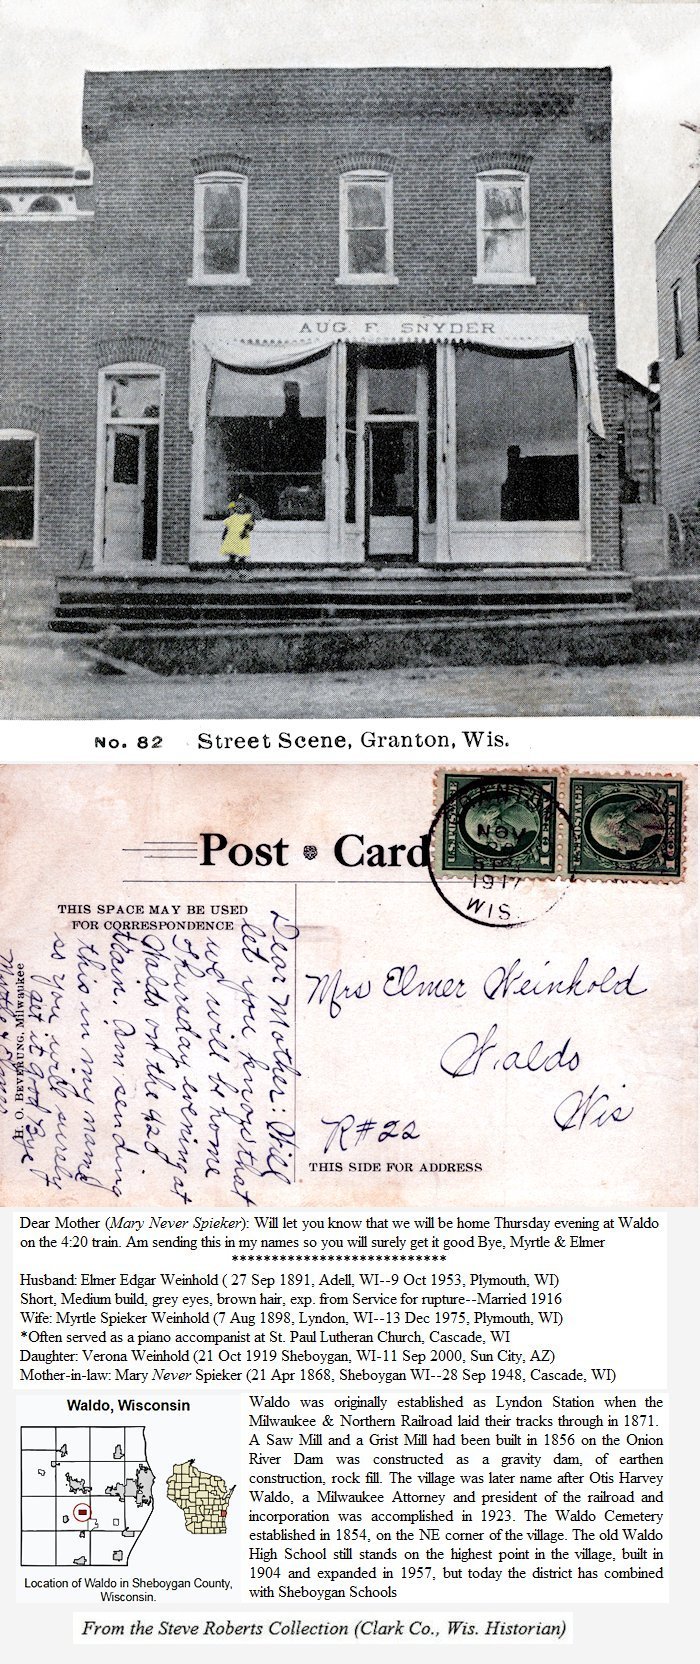 AUG. F. SNYDER
No. 82 Street Scene, Granton, Wis.
Post Card
U.S. POSTAGE 1 CENT 1
U.S. POSTAGE 1 CENT 1
NOV
1917
WIS.
THIS SPACE MAY BE USED
FOR CORRESPONDENCE
Dear Mother: Will
let you know that
we will be home
Thursday evening at
Waldo on the 420
train. Am sending
this in my name
so you will surely
get it good Bye
Myrtle & Elmer
H. O. BEVERUNG, Milwaukee
Mrs Elmer Weinhold
Waldo
Wis
R#22
THIS SIDE FOR ADDRESS
Dear Mother (Mary Never Spieker): Will let you know that we will be home Thursday evening at Waldo
on the 4:20 train. Am sending this in my names so you will surely get it good Bye, Myrtle & Elmer
***************************
Husband: Elmer Edgar Weinhold ( 27 Sep 1891, Adell, WI--9 Oct 1953, Plymouth, WI)
Short, Medium build, grey eyes, brown hair, exp. from Service for rupture--Married 1916
Wife: Myrtle Spieker Weinhold (7 Aug 1898, Lyndon, WI--13 Dec 1975, Plymouth, WI)
*Often served as a piano accompanist at St. Paul Lutheran Church, Cascade, WI
Daughter: Verona Weinhold (21 Oct 1919 Sheboygan, WI-11 Sep 2000, Sun City, AZ)
Mother-in-law: Mary Never Spieker (21 Apr 1868, Sheboygan WI--28 Sep 1948, Cascade, WI)
Waldo, Wisconsin
Location of Waldo in Sheboygan County,
Wisconsin.
Waldo was originally established as Lyndon Station when the
Milwaukee & Northern Railroad laid their tracks through in 1871.
A Saw Mill and a Grist Mill had been built in 1856 on the Onion
River Dam was constructed as a gravity dam, of earthen
construction, rock fill. The village was later name after Otis Harvey
Waldo, a Milwaukee Attorney and president of the railroad and
incorporation was accomplished in 1923. The Waldo Cemetery
established in 1854, on the NE corner of the village. The old Waldo
High School still stands on the highest point in the village, built in
1904 and expanded in 1957, but today the district has combined
with Sheboygan Schools
From the Steve Roberts Collection (Clark Co., Wis. Historian)